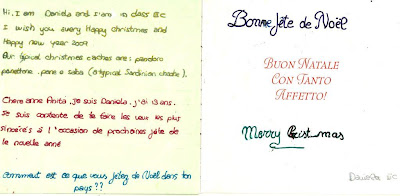 Hi, I am Daniela and I'am in class IIIC
I wish you every Happy christmas and
Happy new year 2009
Our typical christmas caches are: pandoro
panettone, pane a saba (a typical Sardinian choche).
Chere anne Anita, je suis Daniela, j'ai 13 ans.
Je suis contente de te faire les veux les plus
sincères à l'occasion de prochaines fête de
la novelle anné
comment est ce que vous fetez de Noël dans ton
pays??
Bonne fête de Noël
BUON NATALE
CON TANTO
AFFETTO!
Merry Crist_mas
Daniela IIIC